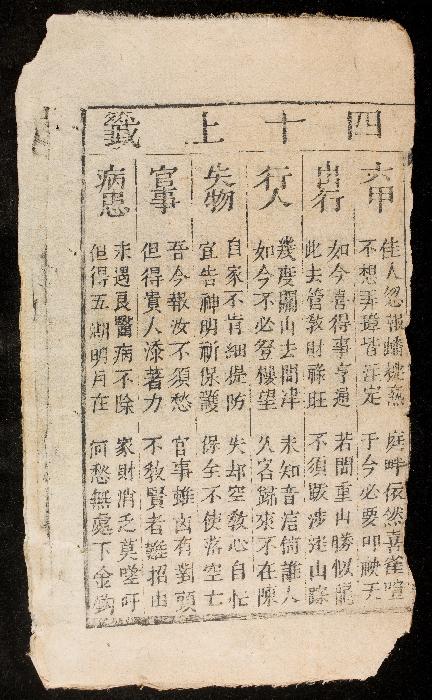 四十上籤
六甲
佳人忽報蟠桃熟 庭畔依然喜雀喧
不想弄璋皆註定 于今必要叩蒼天
出行
如今喜得事亨通 若問重山勝似龍
此去管教財祿旺 不須跋涉迷山蹤
行人
幾度關山去問津 未知音信倚誰人
如今不必登樓望 久客歸來不在陳
失物
自家不肯細提防 失却空教心自忙
宜告神明祈保護 保全不使落空亡
官事
吾今報汝不須愁 官事雖凶有對頭
但得貴人添著力 不教賢者難招由
病患
未遇良醫病不除 家財消乏莫嗟吁
但得五湖明月在 何愁無處下金鈎